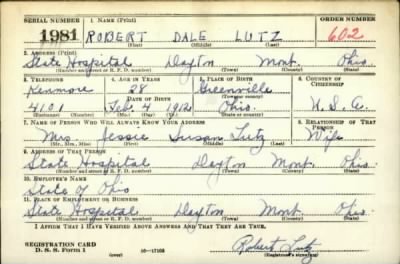 SERIAL NUMBER 1. NAME (Print) ORDER NUMBER
1981 ROBERT DALE LUTZ 602
(First) (Middle) (Last)
2. ADDRESS (Print)
State Hospital Dayton Mont. Ohio.
(Number and street or R. F. D. number) (Town) (County) (State)
3. TELEPHONE 4. AGE IN YEARS 5. PLACE OF BIRTH 6. COUNTRY OF CITIZENSHIP
Kenmore 28 Greenville
DATE OF BIRTH (Town or county)
4101 Feb. 4 1912 Ohio. U. S. A.
(Exchange) (Number) (Mo.) (Day) (Yr.) (State or country)
7. NAME OF PERSON WHO WILL ALWAYS KNOW YOUR ADDRESS 8. RELATIONSHIP OF THAT PERSON
Mrs. Jessie Susan Lutz Wife
(Mr., Mrs., Miss) (First) (Middle) (Last)
9. ADDRESS OF THAT PERSON
State Hospital Dayton Mont. Ohio.
(Number and street or R. F. D. number) (Town) (County) (State)
10. EMPLOYER'S NAME
State of Ohio
11. PLACE OF EMPLOYMENT OR BUSINESS
State Hospital Dayton Mont. Ohio.
(Number and street or R. F. D. number) (Town) (County) (State)
I AFFIRM THAT I HAVE VERIFIED ABOVE ANSWERS AND THAT THEY ARE TRUE.
REGISTRATION CARD
D. S. S. Form 1 16—17105 Robert Lutz
(Registrant's signature)